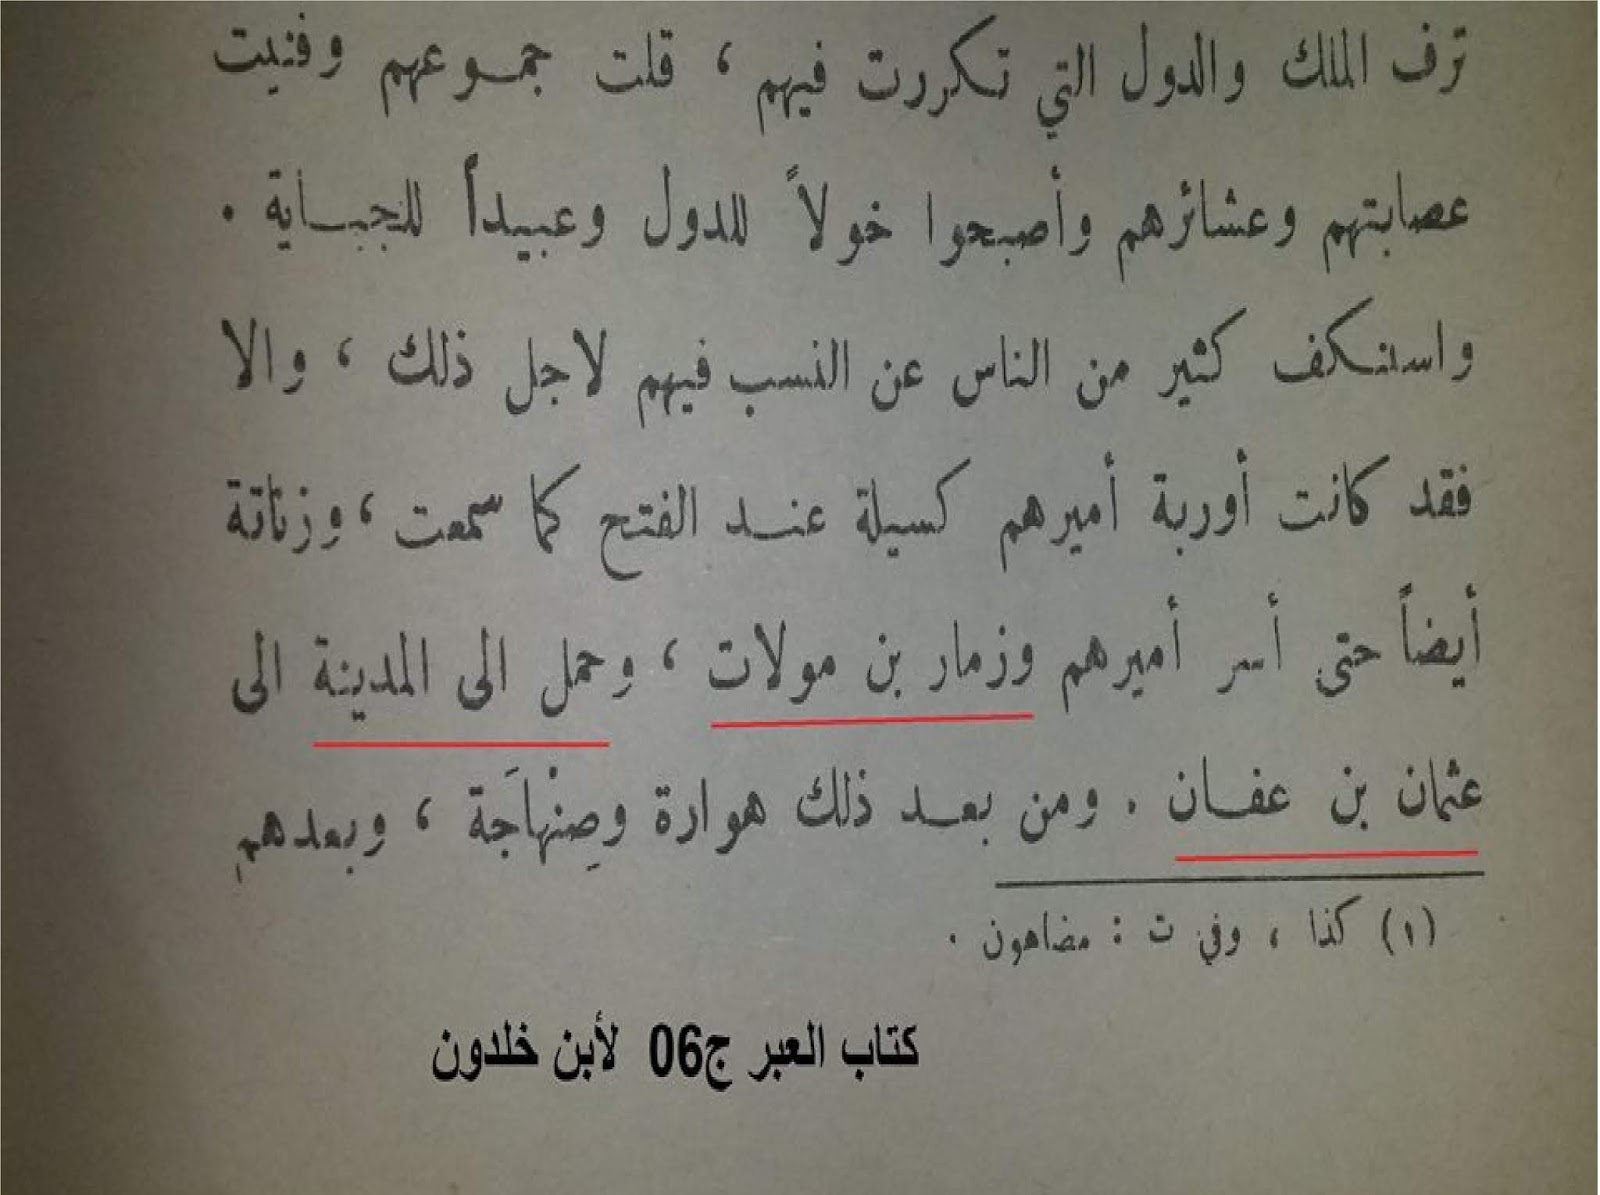 ترف الملك والدول التي تكررت فيهم ، قلت جموعهم وفنيت
عصابتهم وعشائرهم وأصبحوا خولاً للدول وعبيداً للجباية .
واستنكف كثير من الناس عن النسب فيهم لاجل ذلك ، والا
فقد كانت أوربة أميرهم كسيلة عند الفتح كما سمعت ، وزناتة
أيضاً حتى أسر أميرهم وزمار بن مولات ، وحمل الى المدينة الى
عثمان بن عفان . ومن بعد ذلك هوارة وصِنْهاَجة ، وبعدهم
(١) كذا ، وفي ت : مضاهون .
كتاب العبر ج06 لأبن خلدون